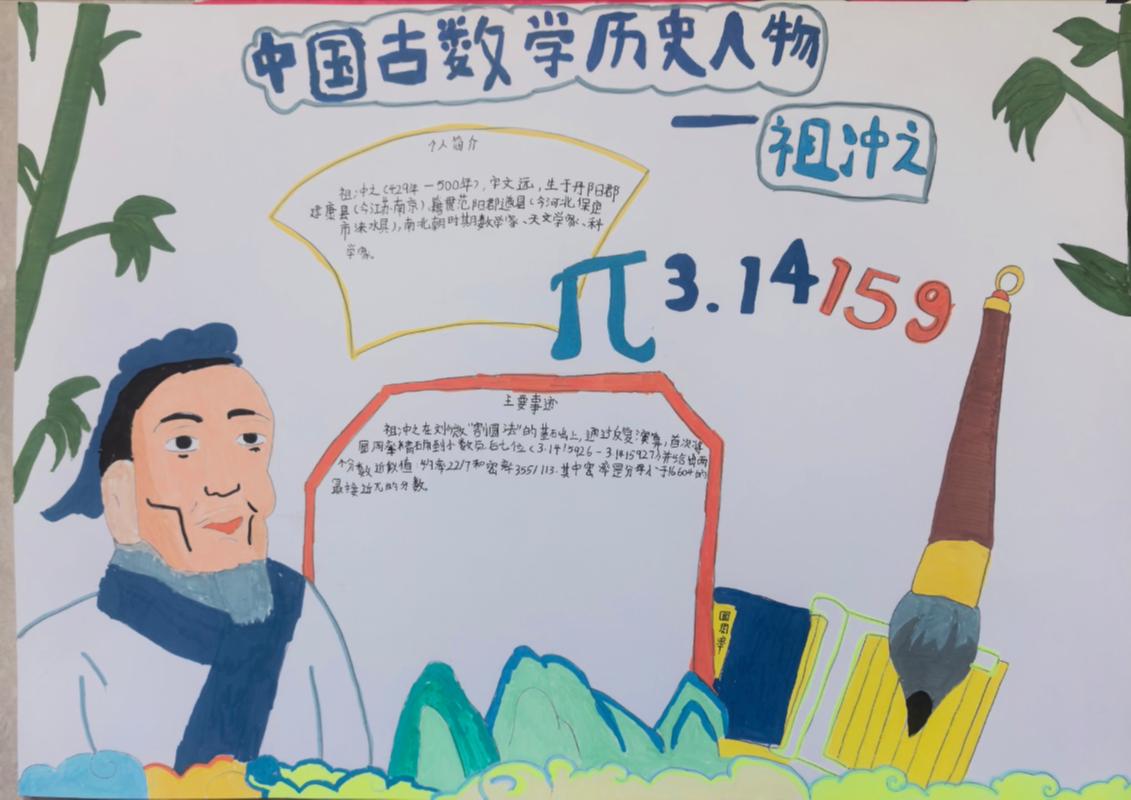 中国古数学历史人物
—祖冲之
个人简介
祖冲之(429年—500年),字文远,生于丹阳郡
建康县(今江苏南京),籍贯范阳郡遒县(今河北保定
市涞水县),南北朝时期数学家、天文学家、科
学家。
π 3.14159
主要事迹
祖冲之在刘徽"割圆法"的基础上,通过反复演算,首次将
圆周率精确到小数点后七位(3.1415926-3.1415927)并给出两
个分数近似值:约率22/7和密率355/113.其中密率是分母小于16604的
最接近π的分数。
圆周率